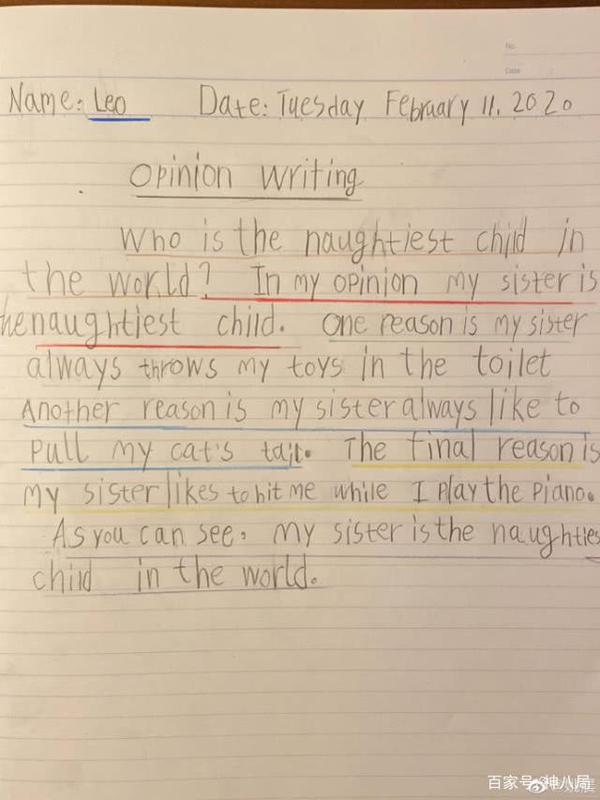 No.
Date
Name: Leo Date: Tuesday February 11. 2020
Opinion Writing
Who is the naughtiest child in
the world? In my opinion my sister is
he naughtiest child. One reason is my sister
always throws my toys in the toilet
Another reason is my sister always like to
pull my cat's tail. The final reason is
my sister likes to hit me while I play the piano.
As you can see, my sister is the naughties
child in the world.
百家号